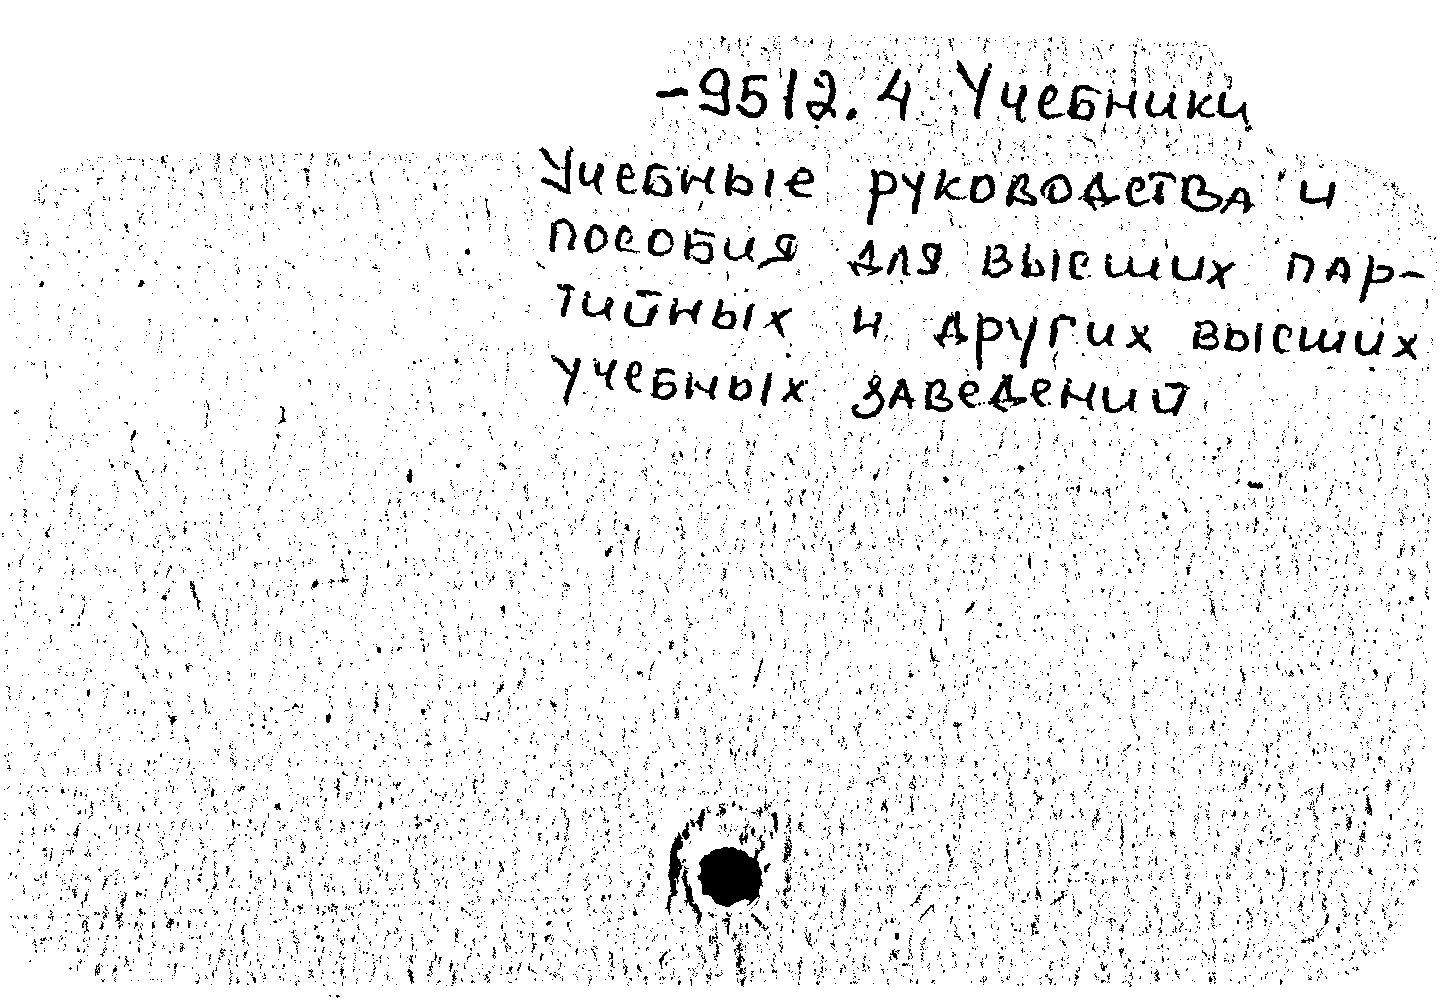 -9512.4 Учебники
Учебные руководства и
пособия для высших пар-
тийных и других высших
учебных заведений